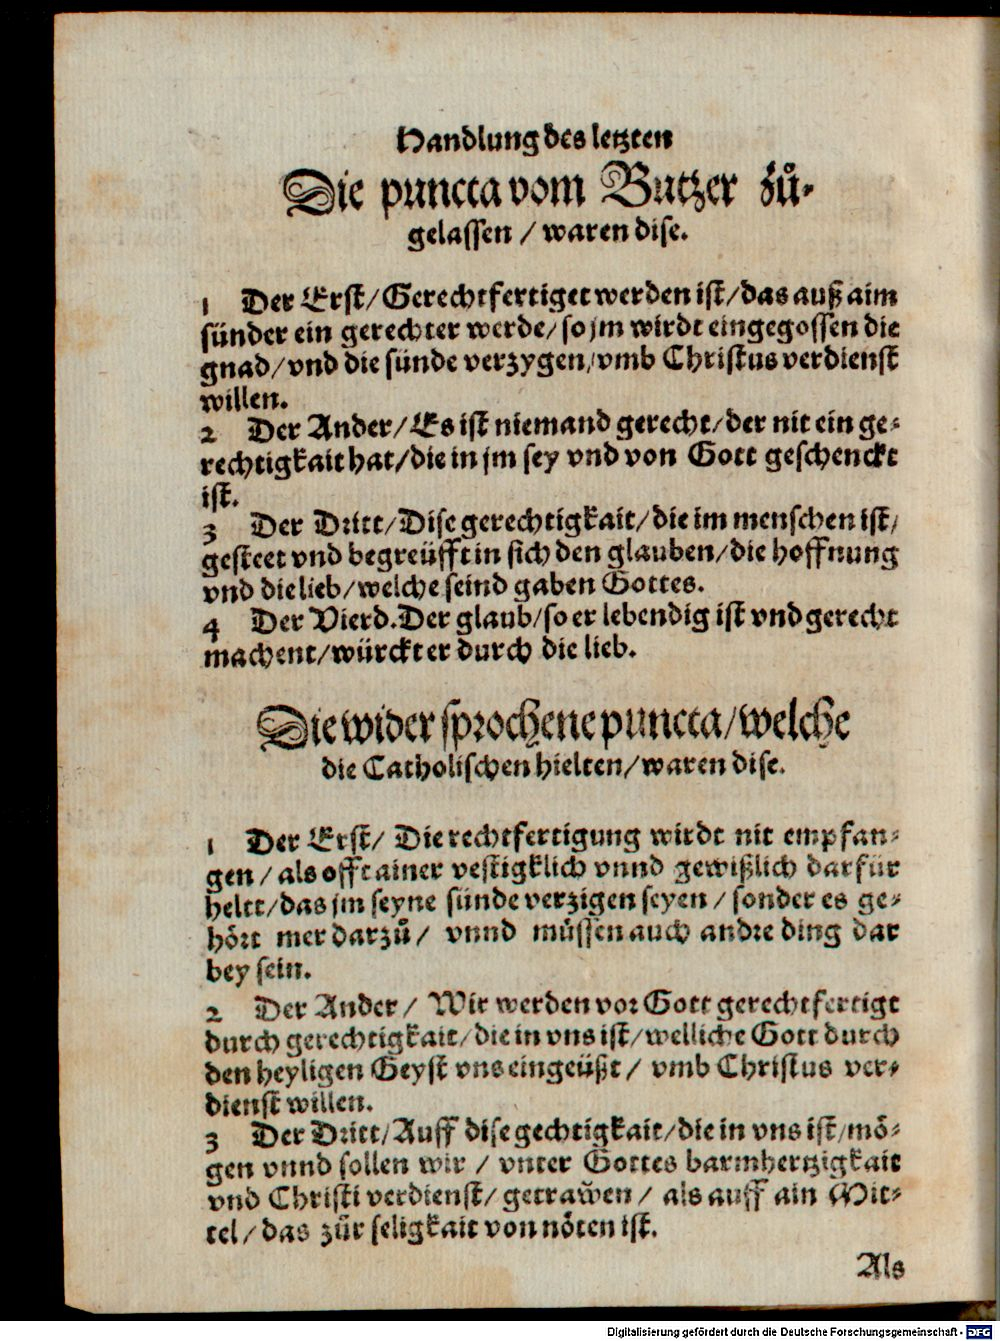 Handlung des letzten
Die puncta vom Butzer zů-
gelassen / waren dise.
1 Der Erst / Gerechtfertiget werden ist / das auß aim
sünder ein gerechter werde / so jm wirdt eingegossen die
gnad / vnd die sünde verzygen / vmb Christus verdienst
willen.
2 Der Ander / Es ist niemand gerecht / der nit ein ge-
rechtigkait hat / die in jm sey vnd von Gott geschenckt
ist.
3 Der Dritt / Dise gerechtigkait / die im menschen ist /
gesteet vnd begreüfft in sich den glauben / die hoffnung
vnd die lieb / welche seind gaben Gottes.
4 Der Vierd. Der glaub / so er lebendig ist vnd gerecht
machent / würckt er durch die lieb.
Die wider sprochene puncta / welche
die Catholischen hielten / waren dise.
1 Der Erst / Die rechtfertigung wirdt nit empfan-
gen / als offt ainer vestigklich vnnd gewißlich darfür
heltt / das jm seyne sünde verzigen seyen / sonder es ge-
hört mer darzů / vnnd müssen auch andre ding dar
bey sein.
2 Der Ander / Wir werden vor Gott gerechtfertigt
durch gerechtigkait / die in vns ist / welliche Gott durch
den heyligen Geyst vns eingeüßt / vmb Christus ver-
dienst willen.
3 Der Dritt / Auff dise gechtigkait / die in vns ist / mö-
gen vnnd sollen wir / vnter Gottes barmhertzigkait
vnd Christi verdienst / getrawen / als auff ain Mit-
tel / das zůr seligkait von nöten ist.
Als
Digitalisierung gefördert durch die Deutsche Forschungsgemeinschaft - DFG